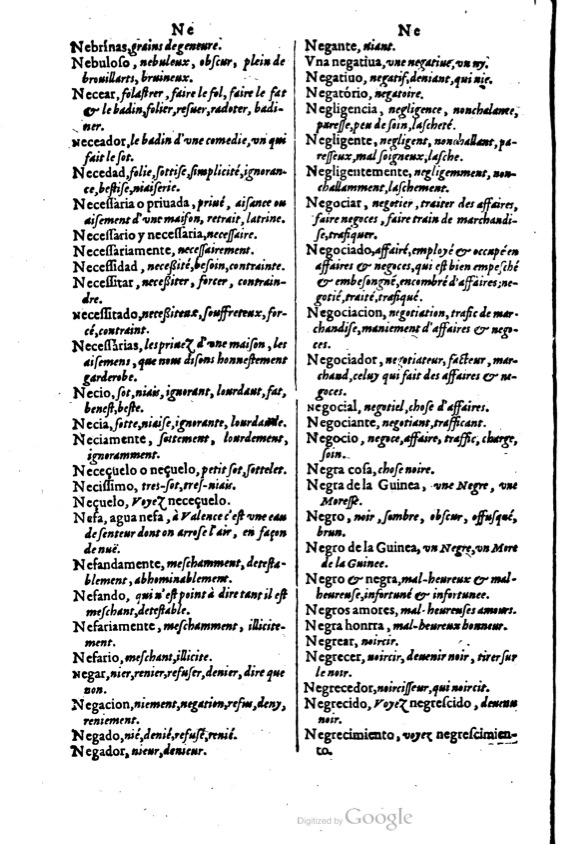 Ne
Nebrinas, grains degeneure.
Nebuloso, nebuleux, obscur, plein de
brouillarts, bruineux.
Necear, folastrer, faire le fol, faire le fat
& le badin, folier, resuer, radoter, badi-
ner.
neceador, le badin d'vne comedie, vn qui
fait le sot.
Necedad, folie, sottise, simplicité, ignoran-
ce, bestise, niaiserie.
Necessaria o priuada, priué, aisance ou
aisement d'vne maison, retrait, latrine.
Necessario y necessaria, necessaire.
Necessariamente, necessairement.
Necessidad, necessité, besoin, contrainte.
Necessitar, necessiter, forcer, contrain-
dre.
necessitado, necessiteux, souffreteux, for-
cé, contraint.
Necessàrias, les priuez d'vne maison, les
aisemens, que nous disons honnestement
garderobe.
Necio, sot, niais, ignorant, lourdaut, fat,
benest, beste.
Necia, sotte, niaise, ignorante, lourdaude.
Neciamente, sottement, lourdement,
ignoramment.
Neceçuelo o neçuelo, petit sot, sottelet.
Necissimo, tres-sot, tres-niais.
Neçuelo, Voyez neceçuelo.
Nefa, agua nefa, à Valence c'est vne eau
de senteur dont on arrose l'air, en façon
de nuë.
Nefandamente, meschamment, detesta-
blement, abhominablement.
Nefando, qui n'est point à dire tant il est
meschant, detestable.
Nefariamente, meschamment, illicite-
ment.
Nefario, meschant, illicite.
Negar, nier, renier, refuser, denier, dire que
non.
Negacion, niement, negation, refus, deny,
reniement.
Negado, nié, denié, refusé, renié.
Negador, nieur, denieur.
Ne
Negante, niant.
Vna negatiua, vne negatiue, vn ny.
Negatiuo, negatif, deniant, qui nie.
Negatório, negatoire.
Negligencia, negligence, nonchalance,
paresse, peu de soin, lascheté.
Negligente, negligent, nonchallant, pa-
resseux, mal soigneux, lasche.
Negligentemente, negligemment, non-
challamment, laschement.
Negociar, negotier, traiter des affaires,
faire negoces, faire train de marchandi-
se, trafiquer.
Negociado, affairé, employé & occupé en
affaires & negoces, qui est bien empesché
& embesongné, encombré d'affaires; ne-
gotié, traité, trafiqué.
Negociacion, negotiation, trafic de mar-
chandise, maniement d'affaires & nego-
ces.
Negociador, negotiateur, facteur, mar-
chand, celuy qui fait des affaires & ne-
goces.
negocial, negotiel, chose d'affaires.
Negociante, negotiant, trafficant.
Negocio, negoce, affaire, traffic, charge,
soin.
Negra cosa, chose noire.
Negra de la Guinea, vne Negre, vne
Moresse.
Negro, noir, sombre, obscur, offusqué,
brun.
Negro de la Guinea, vn Negre, vn More
de la Guinee.
Negro & negra, mal-heureux & mal-
heureuse, infortuné & infortunee.
Negros amores, mal-heureuses amours.
Negra honrra, mal-heureux honneur.
Negrear, noircir.
Negrecer, noircir, deuenir noir, tirer sur
le noir.
Negrecedor, noircisseur, qui noircit.
Negrecido, Voyez negrescido, deuenu
noir.
Negrecimiento, voyez negrescimien-
to.
Digitized by Google